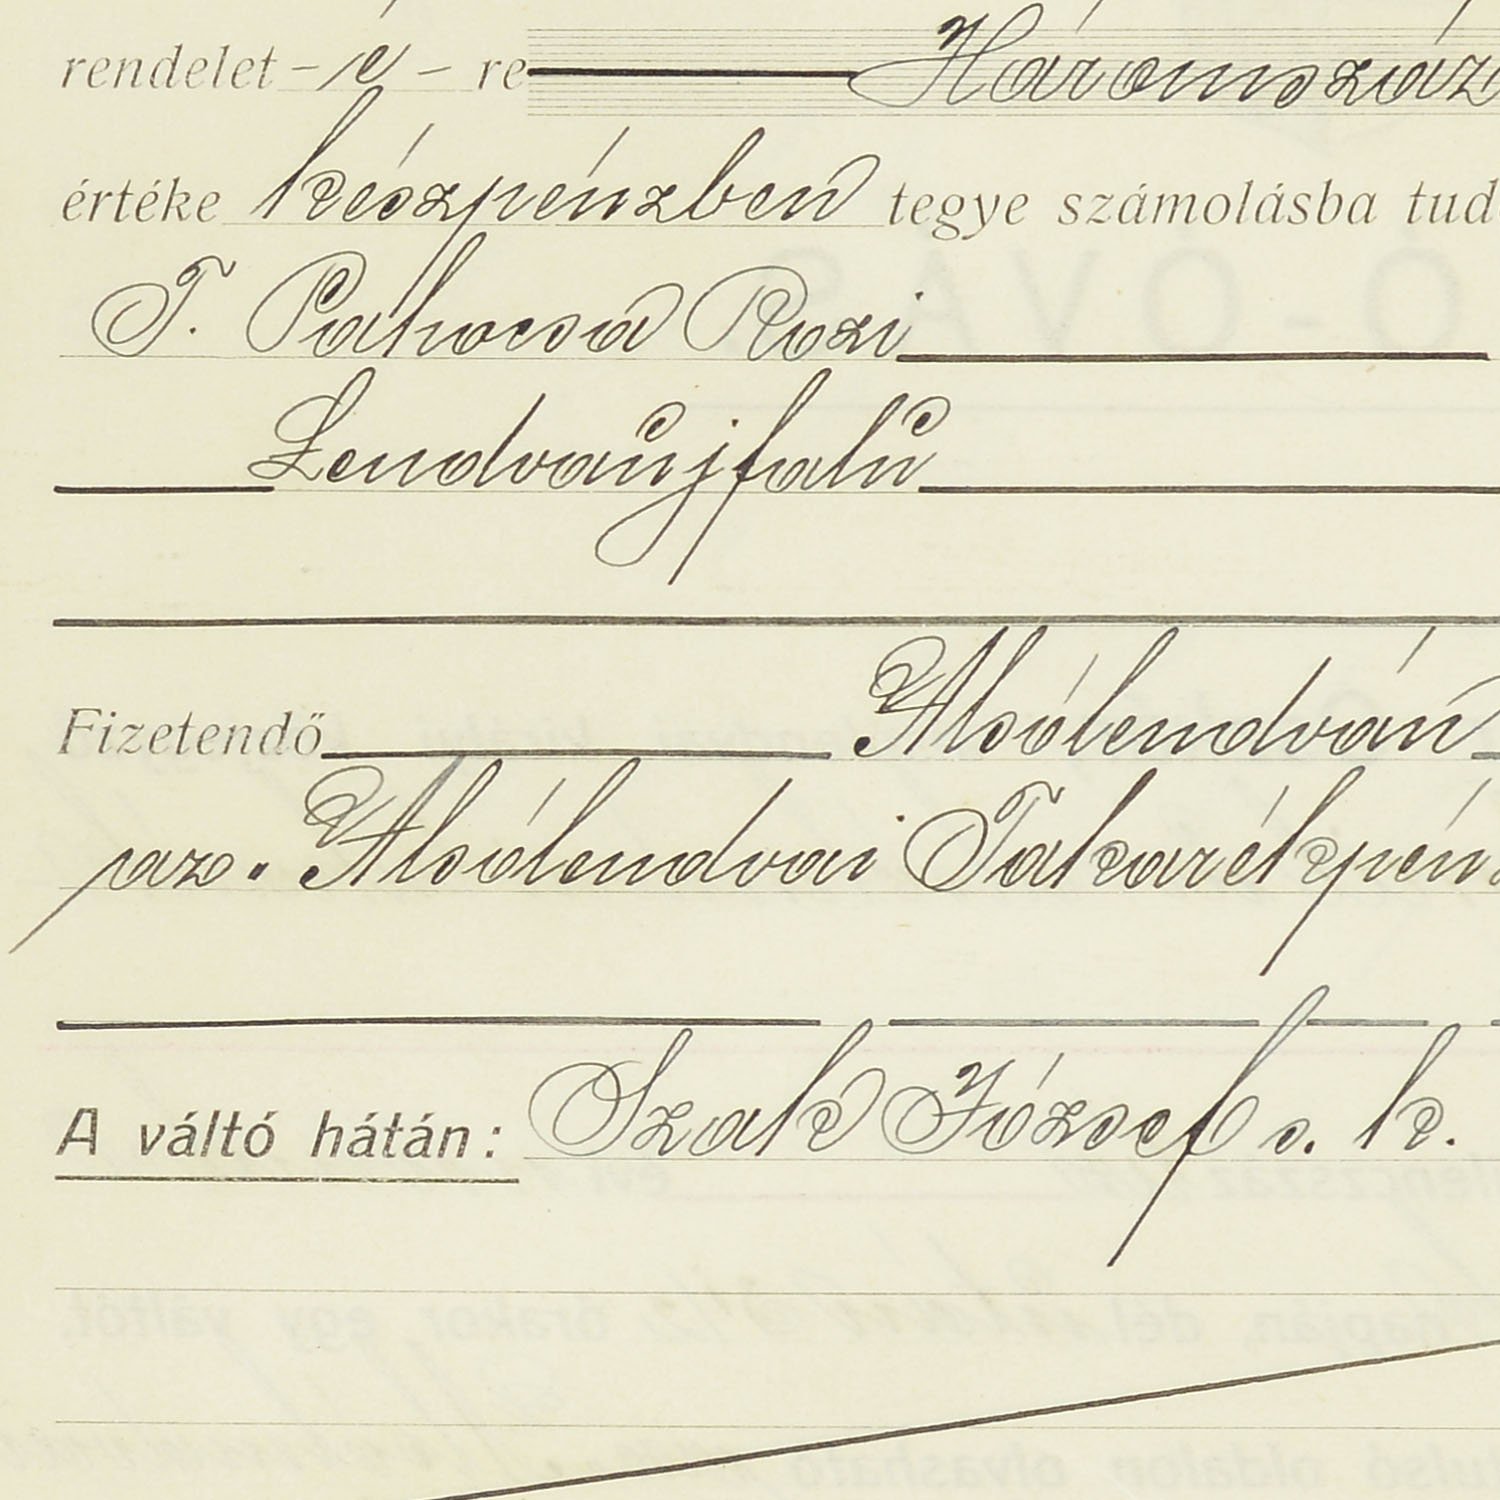 rendelet - é - re Háromszáz
értéke készpénzben tegye számolásba tud
T. Pahocsa Rozi
Lendvaújfalu
Fizetendő Alsólendván
az. Alsólendvai Takarékpénz
A váltó hátán: Szak József s. k.